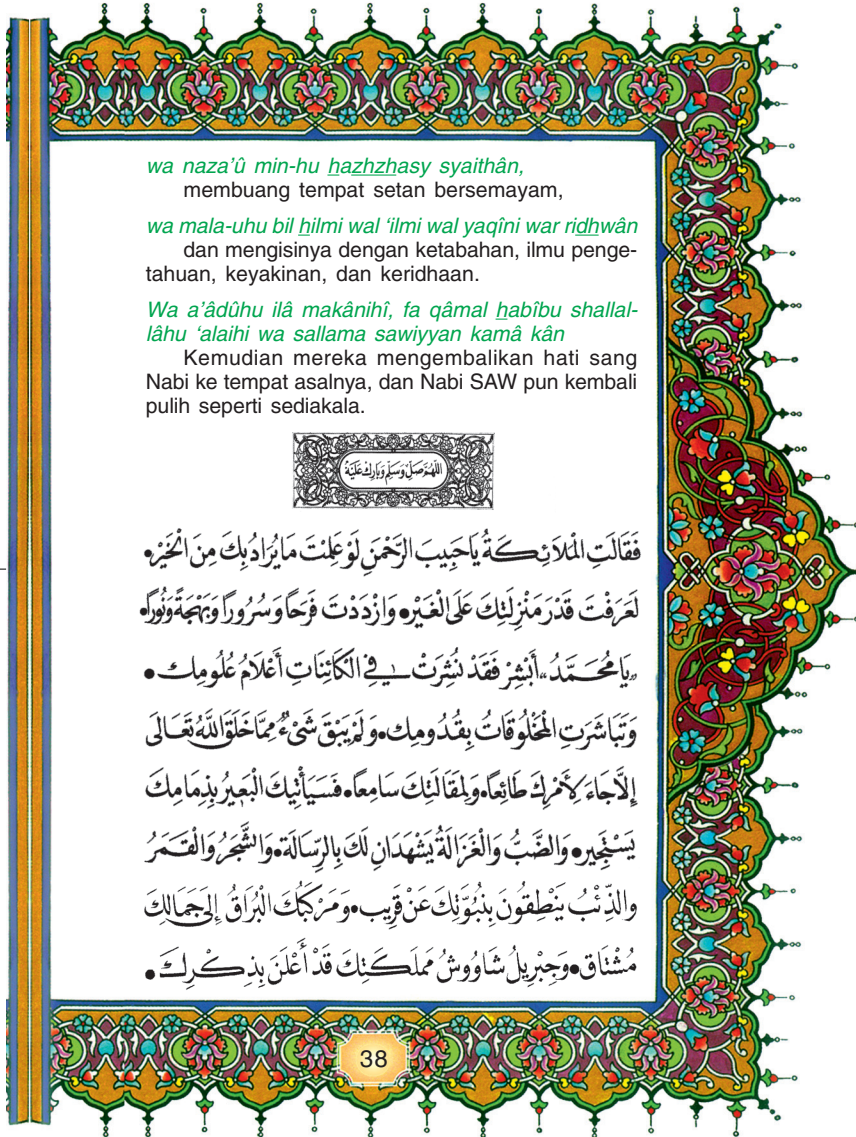 wa naza’û min-hu hazhzhasy syaithân,
membuang tempat setan bersemayam,
wa mala-uhu bil hilmi wal ‘ilmi wal yaqîni war ridhwân
dan mengisinya dengan ketabahan, ilmu penge-
tahuan, keyakinan, dan keridhaan.
Wa a’âdûhu ilâ makânihî, fa qâmal habîbu shallal-
lâhu ‘alaihi wa sallama sawiyyan kamâ kân
Kemudian mereka mengembalikan hati sang
Nabi ke tempat asalnya, dan Nabi SAW pun kembali
pulih seperti sediakala.
اللّٰهُمَّ صَلِّ وَسَلِّمْ وَبَارِكْ عَلَيْهِ
فَقَالَتِ الْمَلَائِكَةُ يَاحَبِيبَ الرَّحْمٰنِ لَوْ عَلِمْتَ مَايُرَادُ بِكَ مِنَ الْخَيْرِ •
لَعَرَفْتَ قَدْرَ مَنْزِلَتِكَ عَلَى الْغَيْرِ • وَازْدَدْتَ فَرَحًا وَسُرُورًا وَبَهْجَةً وَنُورًا •
«يَامُحَمَّدُ» أَبْشِرْ فَقَدْ نُشِرَتْ فِي الْكَائِنَاتِ أَعْلَامُ عُلُومِكَ •
وَتَبَاشَرَتِ الْمَخْلُوقَاتُ بِقُدُومِكَ • وَلَمْ يَبْقَ شَيْءٌ مِمَّا خَلَقَ اللّٰهُ تَعَالَى
إِلَّاجَاءَ لِأَمْرِكَ طَائِعًا • وَلِمَقَالَتِكَ سَامِعًا • فَسَيَأْتِيكَ الْبَعِيرُ بِذِمَامِكَ
يَسْتَجِيرُ • وَالضَّبُّ وَالْغَزَالَةُ يَشْهَدَانِ لَكَ بِالرِّسَالَةِ • وَالشَّجَرُ وَالْقَمَرُ
وَالذِّئْبُ يَنْطِقُونَ بِنُبُوَّتِكَ عَنْ قَرِيبٍ • وَمَرْكَبُكَ الْبُرَاقُ إِلَى جَمَالِكَ
مُشْتَاقٌ • وَجِبْرِيلُ شَاوُوشُ مَمْلَكَتِكَ قَدْ أَعْلَنَ بِذِكْرِكَ •
38